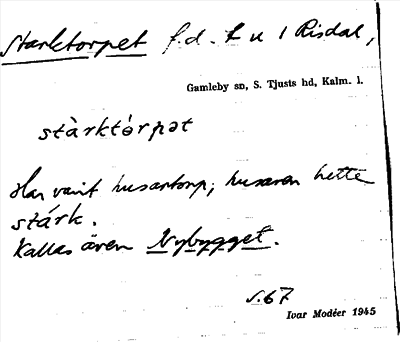 Starktorpet f.d. t u / Risdal,
Gamleby sn, S. Tjusts hd, Kalm. l.
stàrktórpət
Har varit husartorp; husaren hette
stárk.
Kallas även Nybygget.
s. 67
Ivar Modéer 1945